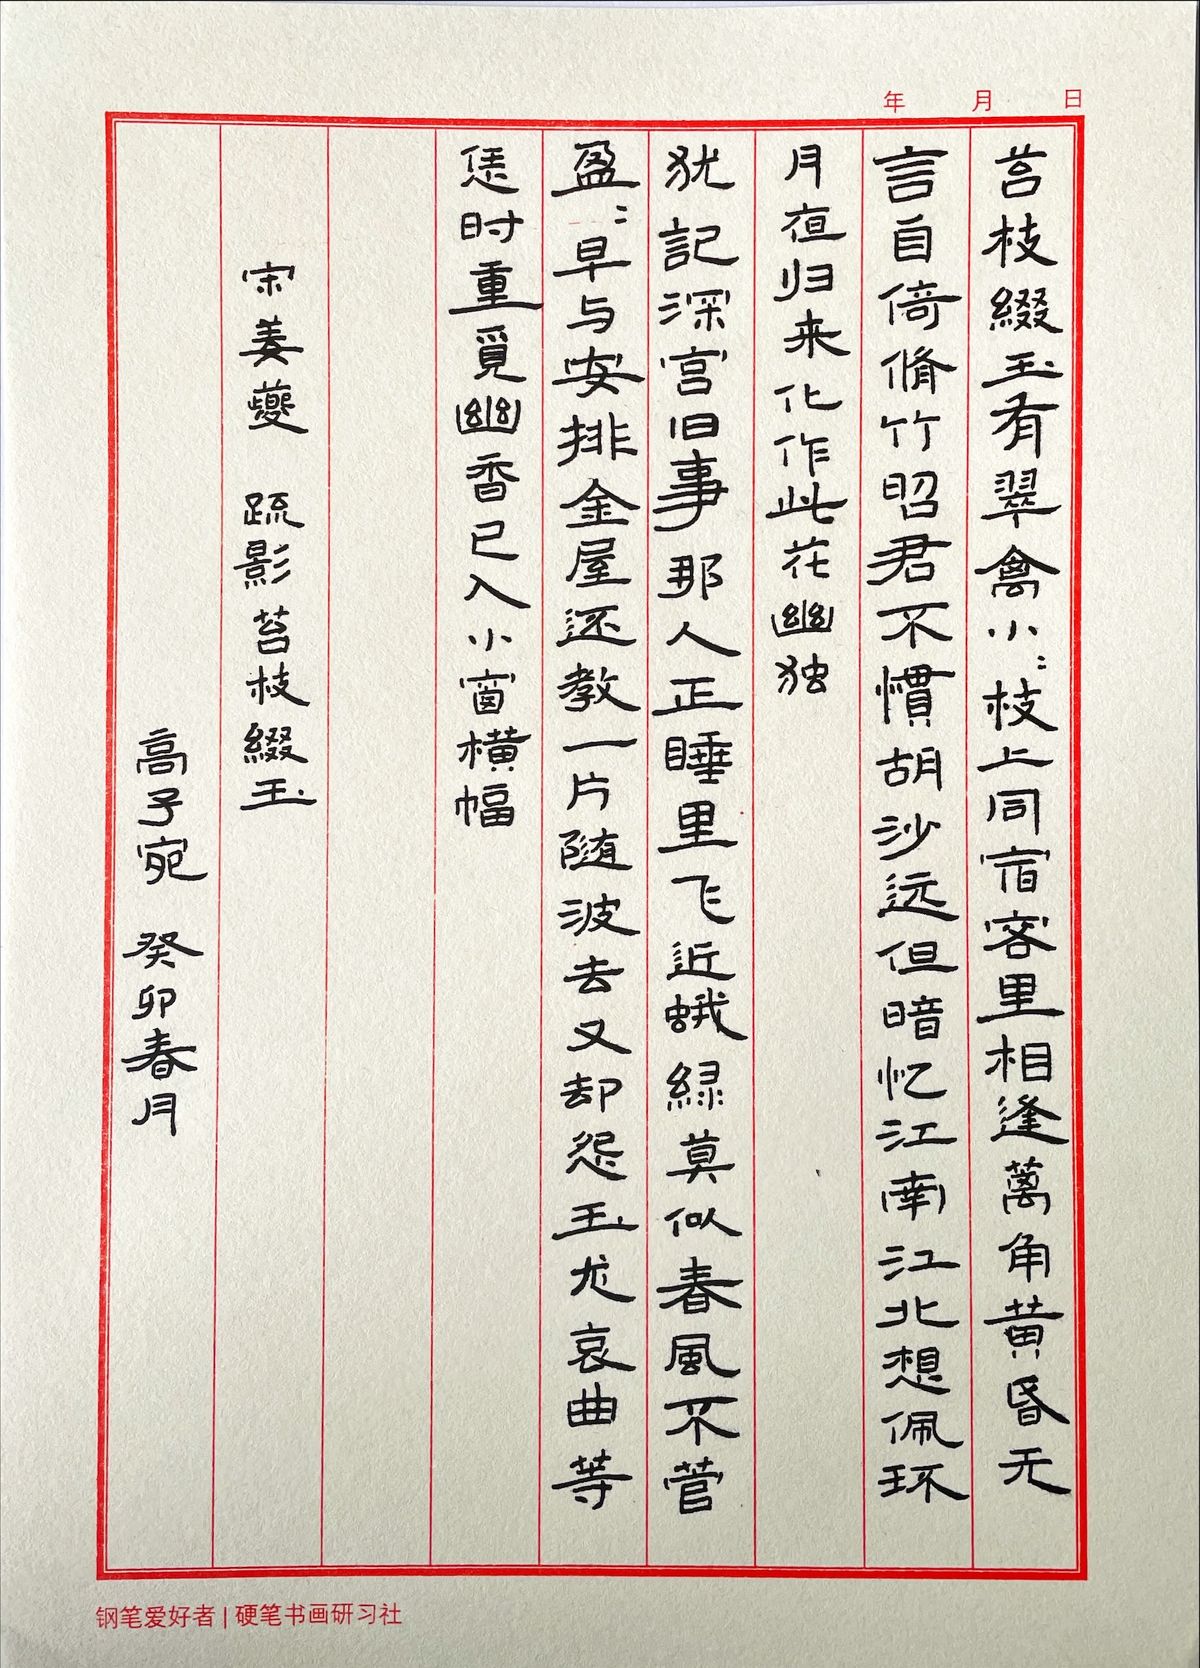 年 月 日
苔枝綴玉有翠禽小:枝上同宿客里相逢蓠角黄昏无
言自倚脩竹昭君不慣胡沙远但暗忆江南江北想佩环
月夜归来化作此花幽独
犹記深宫旧事那人正睡里飞近蛾緑莫似春風不菅
盈:早与安排金屋还教一片随波去又却怨玉龙哀曲等
恁时重覓幽香已入小窗横幅
宋姜夔 疏影苔枝綴玉
高子宛 癸卯春月
钢笔爱好者 | 硬笔书画研习社